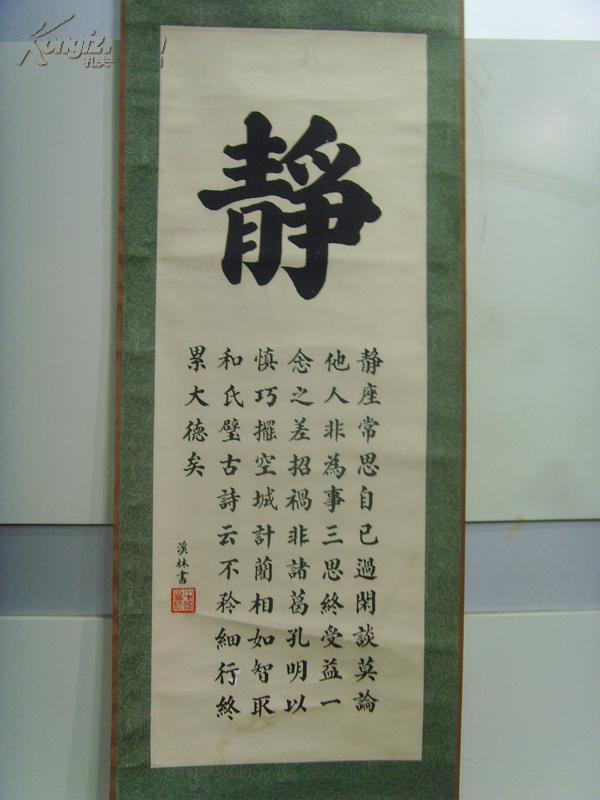 靜
静座常思自己過閑談莫論
他人非為事三思終受益一
念之差招禍非諸葛孔明以
慎巧擺空城計藺相如智取
和氏璧古詩云不矜細行終
累大德矣
溪林書
Kongfz.com
孔夫子旧书网